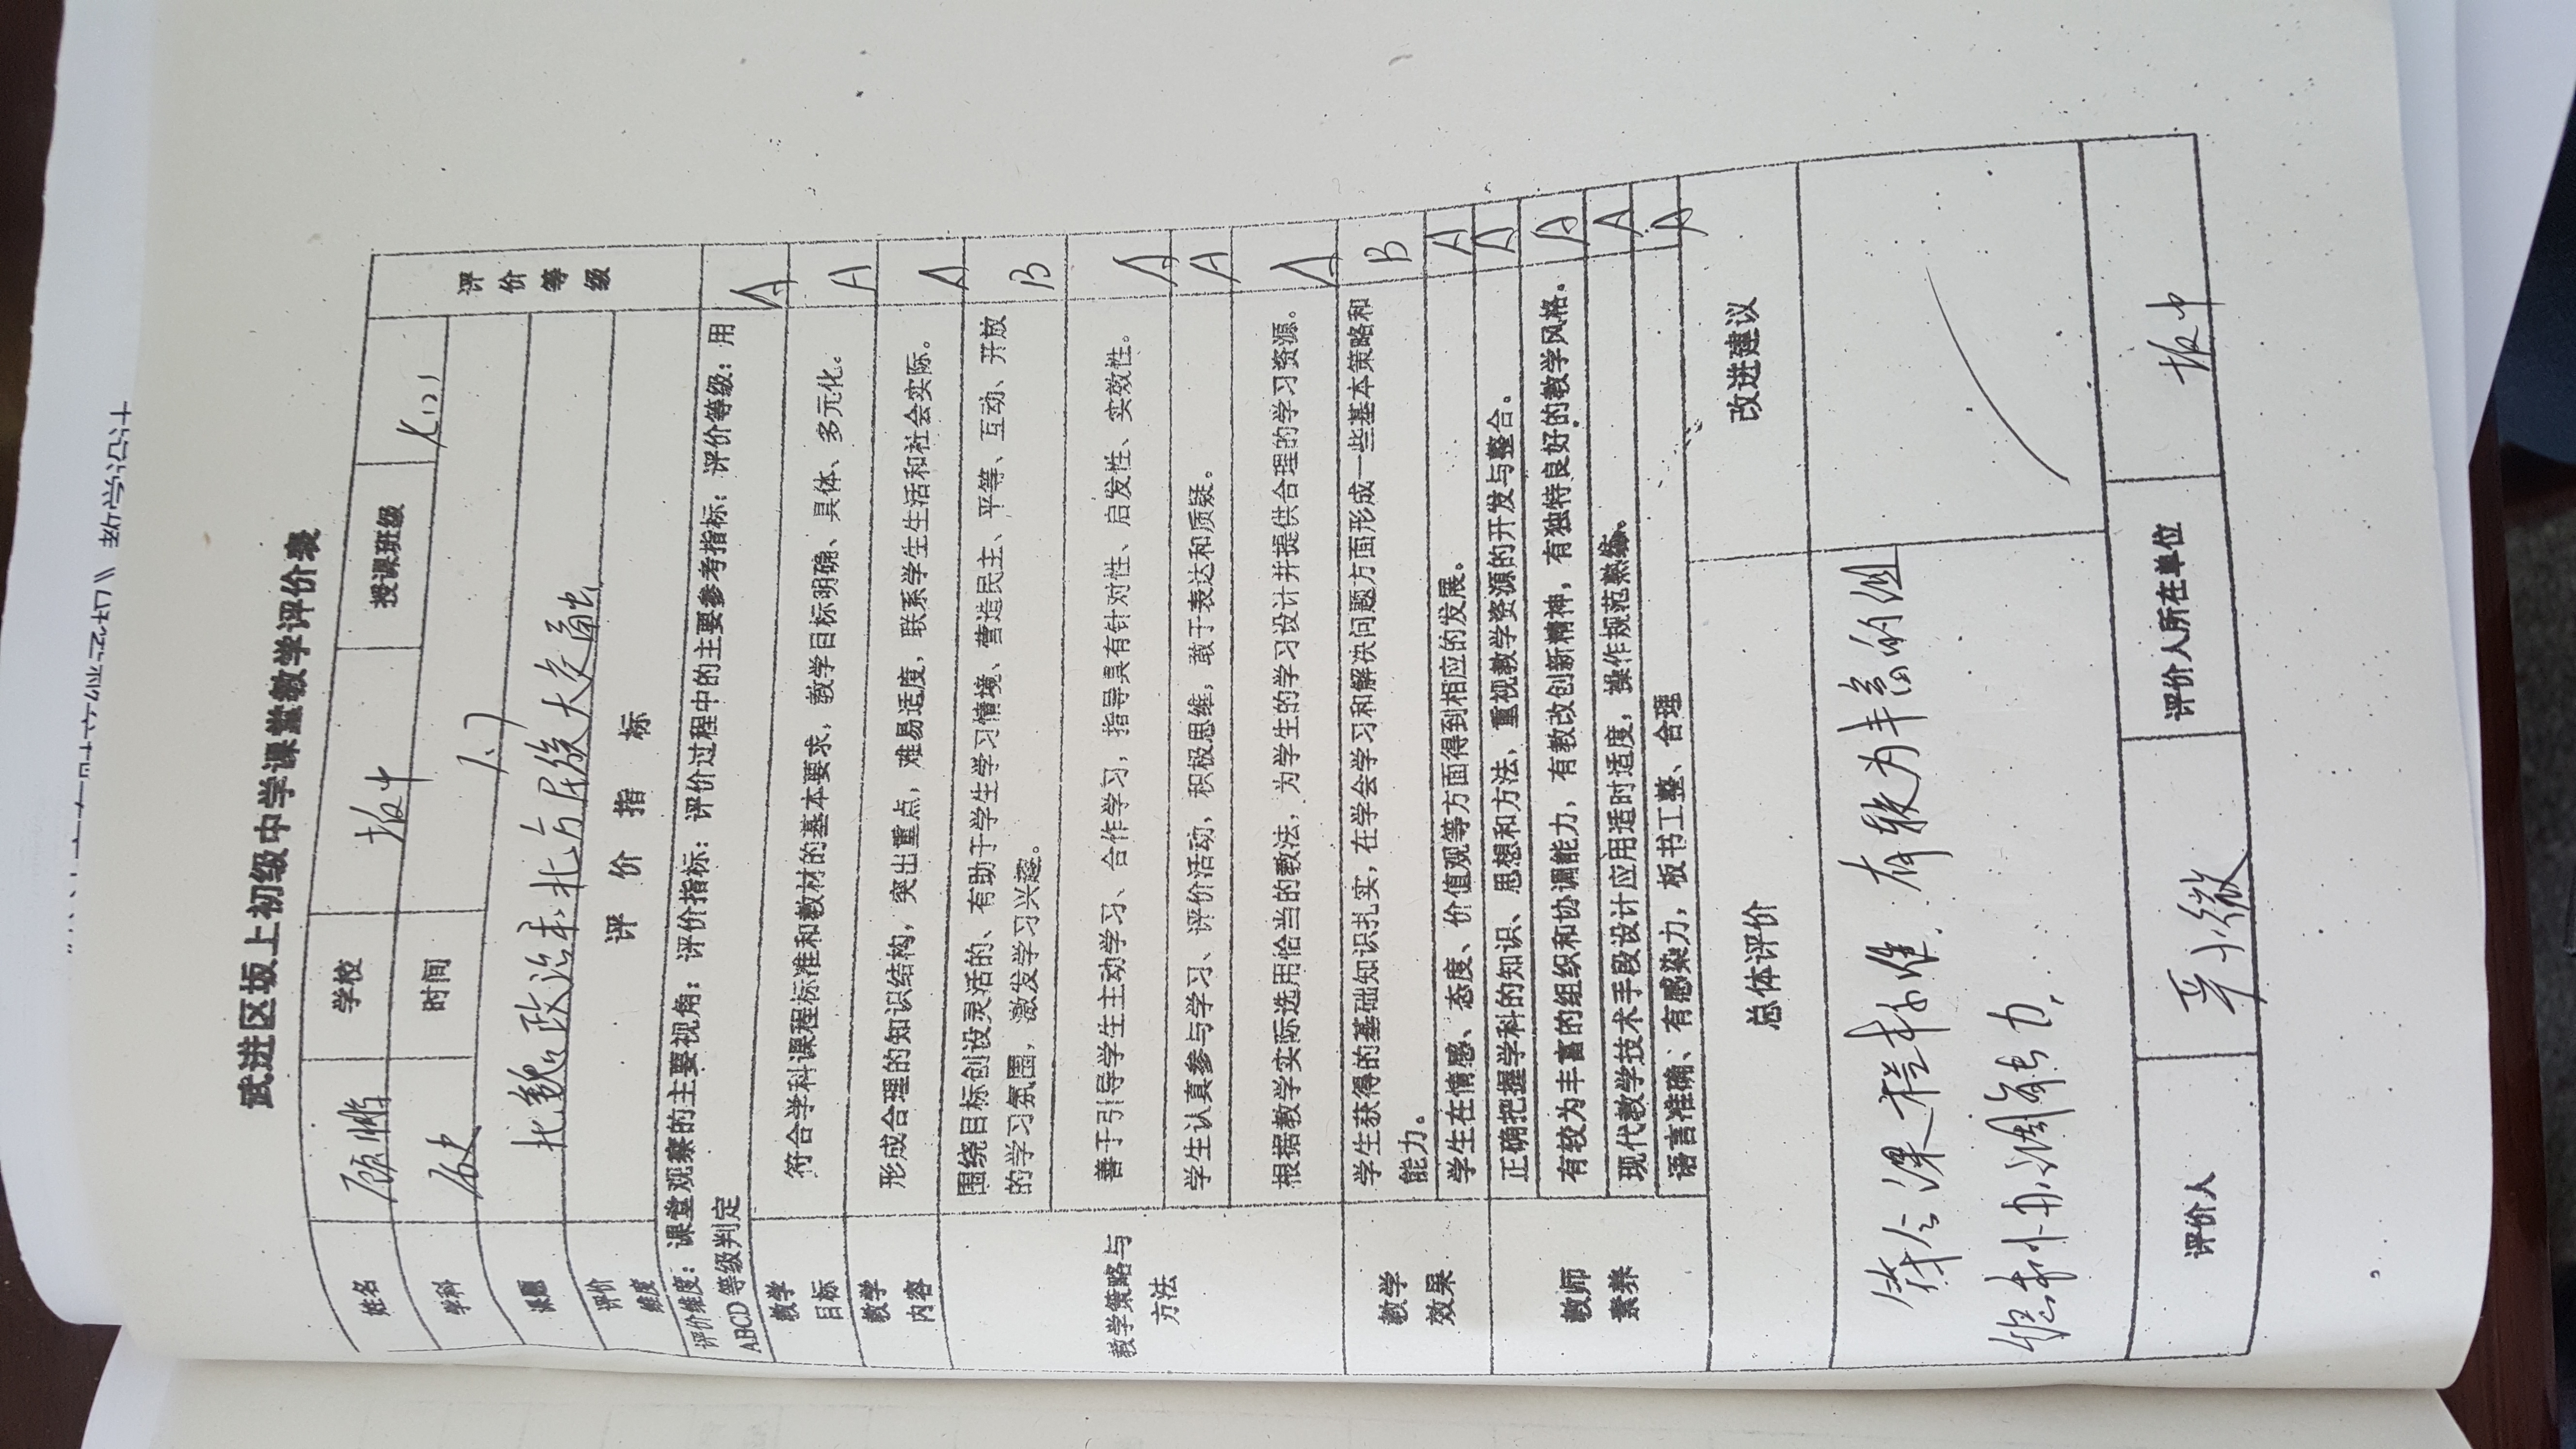 武进区坂上初级中学课堂教学评价表
姓名 顾 学校 坂中 授课班级 评价等级
学科 历史 时间 1.7
课题 北魏政治和北方民族大交融
评价维度 评价指标
评价维度：课堂观察的主要视角；评价指标：评价过程中的主要参考指标；评价等级：用
ABCD等级判定 A
教学目标 符合学科课程标准和教材的基本要求，教学目标明确、具体、多元化。 A
教学内容 形成合理的知识结构，突出重点，难易适度，联系学生生活和社会实际。 A
教学策略与方法 围绕目标创设灵活的、有助于学生学习情境、营造民主、平等、互动、开放 B
的学习氛围，激发学习兴趣。
善于引导学生主动学习、合作学习，指导具有针对性、启发性、实效性。 A
学生认真参与学习、评价活动，积极思维，敢于表达和质疑。 A
根据教学实际选用恰当的教法，为学生的学习设计并提供合理的学习资源。 A
教学效果 学生获得的基础知识扎实，在学会学习和解决问题方面形成一些基本策略和 B
能力。
学生在情感、态度、价值观等方面得到相应的发展。 A
教师素养 正确把握学科的知识、思想和方法，重视教学资源的开发与整合。 A
有较为丰富的组织和协调能力，有教改创新精神，有独特良好的教学风格。 A
现代教学技术手段设计应用适时适度，操作规范熟练。 A
语言准确、有感染力，板书工整、合理 A
总体评价 改进建议
符合课程标准，有较为丰富的组
织和协调能力。
评价人 评价人所在单位 坂中